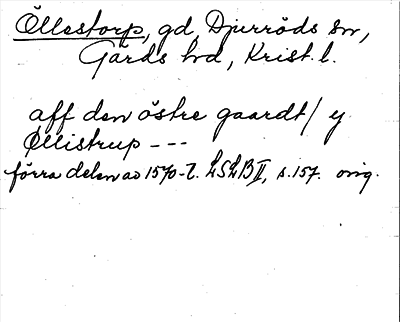 Öllestorp, gd, Djurröds sn,
Gärds hd, Krist. l.
aff den östre gaardt / y
Øllistrup ---
förra delen av 1570-t. LSLB II, s. 157. orig.